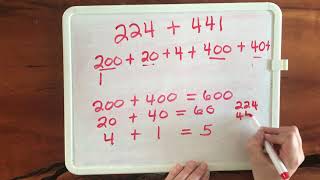 224 + 441
200 + 20 + 4 + 400 + 40 +
1
200 + 400 = 600
20 + 40 = 60
4 + 1 = 5
224
44